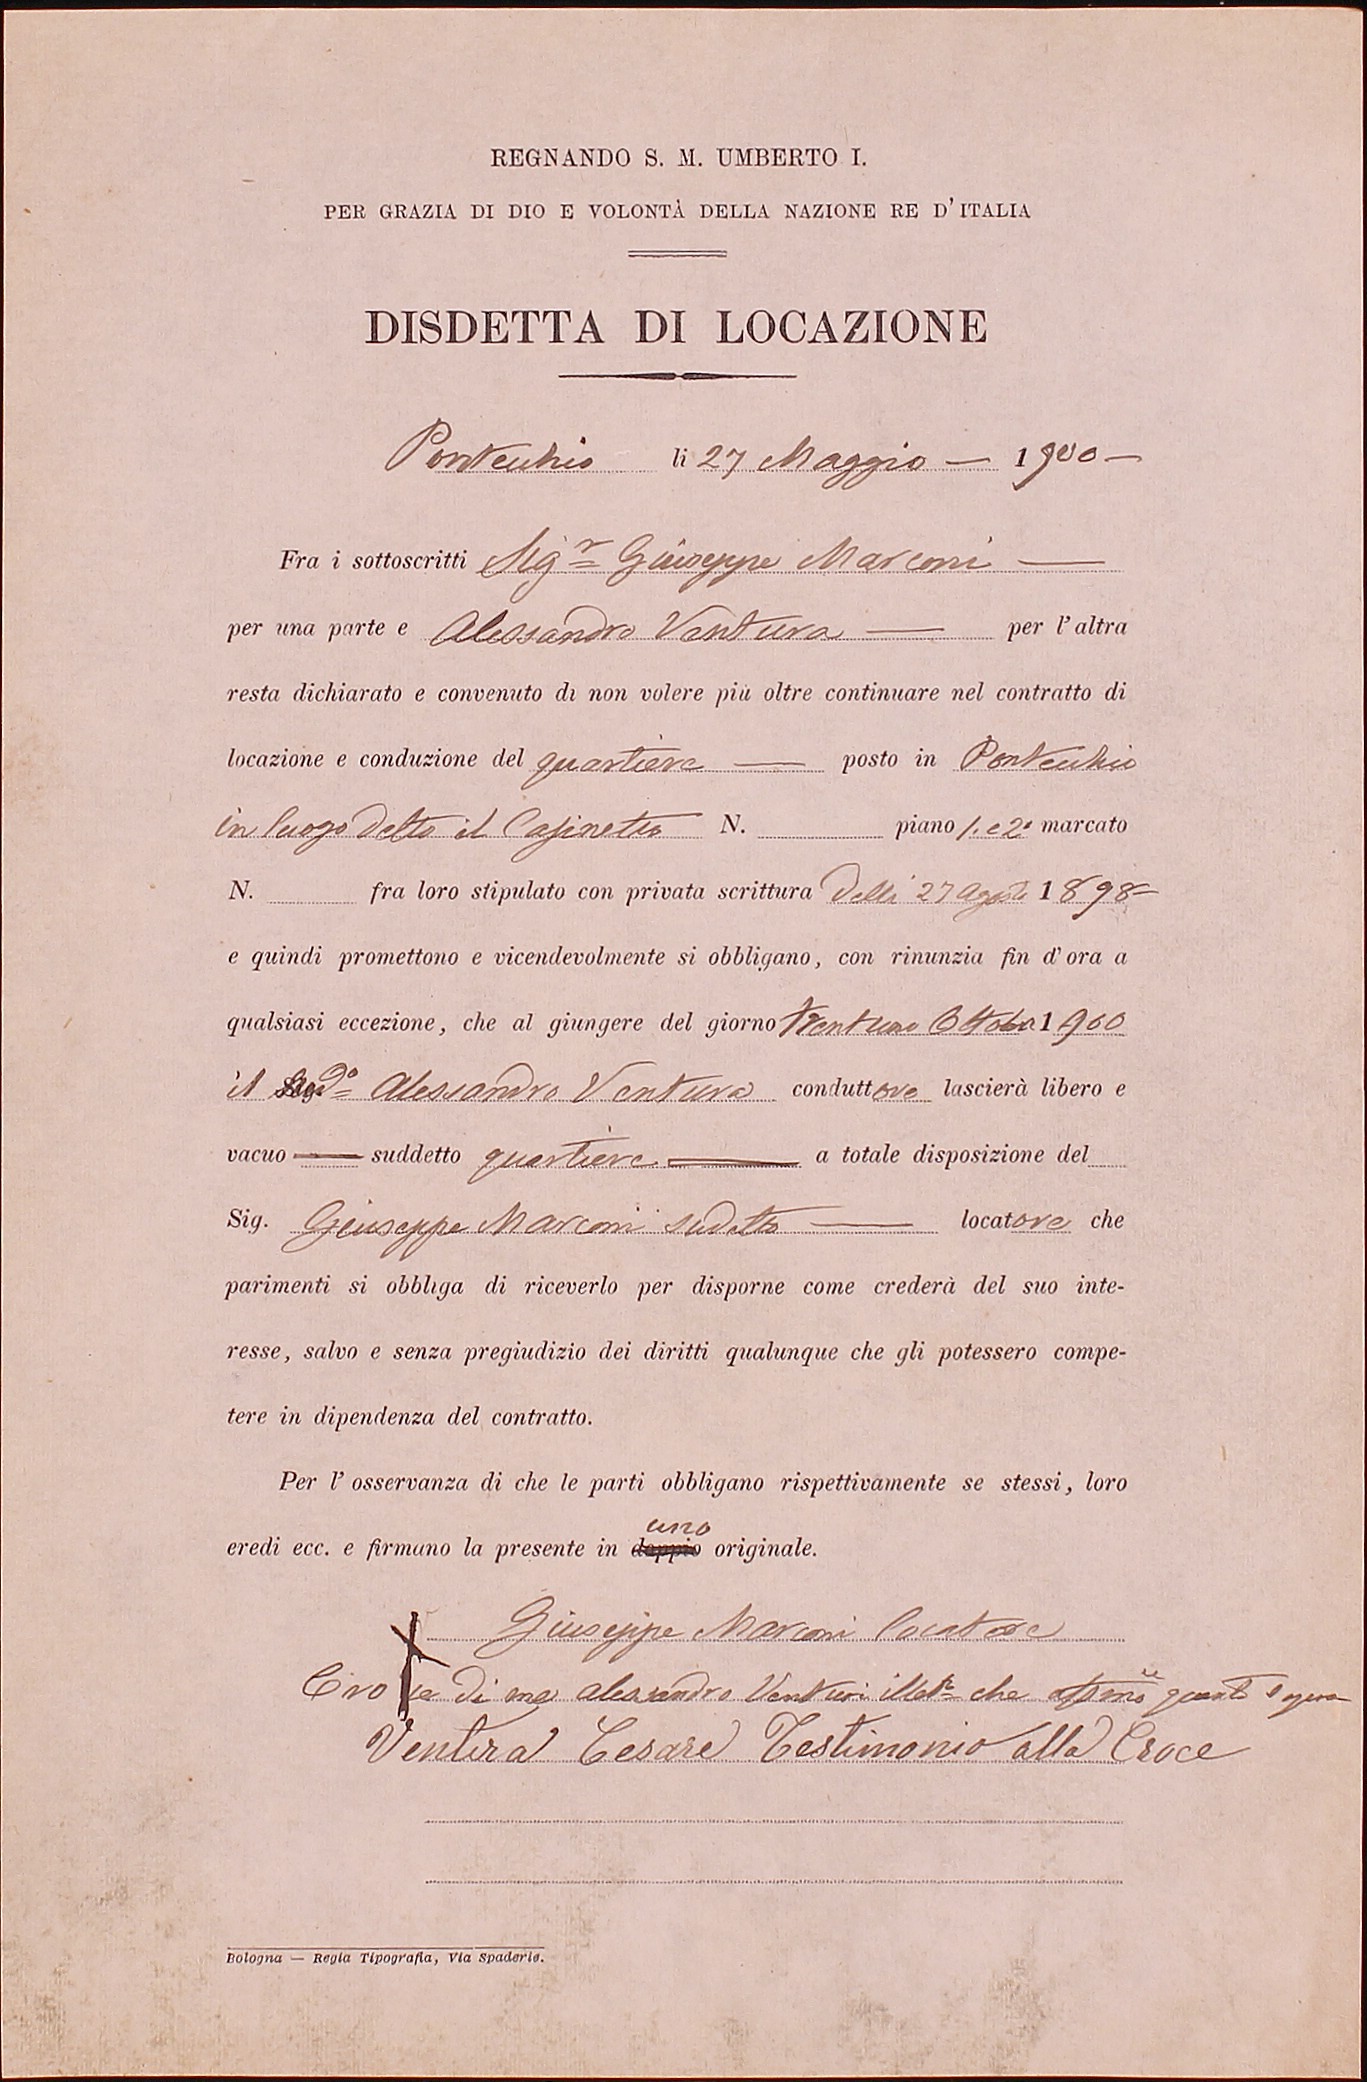 REGNANDO S. M. UMBERTO I.
PER GRAZIA DI DIO E VOLONTÀ DELLA NAZIONE RE D'ITALIA
DISDETTA DI LOCAZIONE
Pontecchio li 27 Maggio — 1900 —
Fra i sottoscritti Sigr Giuseppe Marconi —
per una parte e Alessandro Ventura — per l'altra
resta dichiarato e convenuto di non volere più oltre continuare nel contratto di
locazione e conduzione del quartiere — posto in Pontecchio
in luogo detto il Casinetto N. piano 1. e 2° marcato
N. fra loro stipulato con privata scrittura delli 27 Agosto 1898 —
e quindi promettono e vicendevolmente si obbligano, con rinunzia fin d'ora a
qualsiasi eccezione, che al giungere del giorno trentuno Ottobre 1900
il Alessandro Ventura conduttore lascierà libero e
vacuo — suddetto quartiere — a totale disposizione del
Sig. Giuseppe Marconi sudetto — locatore che
parimenti si obbliga di riceverlo per disporne come crederà del suo inte-
resse, salvo e senza pregiudizio dei diritti qualunque che gli potessero compe-
tere in dipendenza del contratto.
Per l'osservanza di che le parti obbligano rispettivamente se stessi, loro
uno
eredi ecc. e firmano la presente in doppio originale.
Giuseppe Marconi locatore
Croce di me Alessandro Venturi che quanto sopra
Ventura Cesare Testimonio alla Croce
Bologna — Regia Tipografia, Via Spaderie.